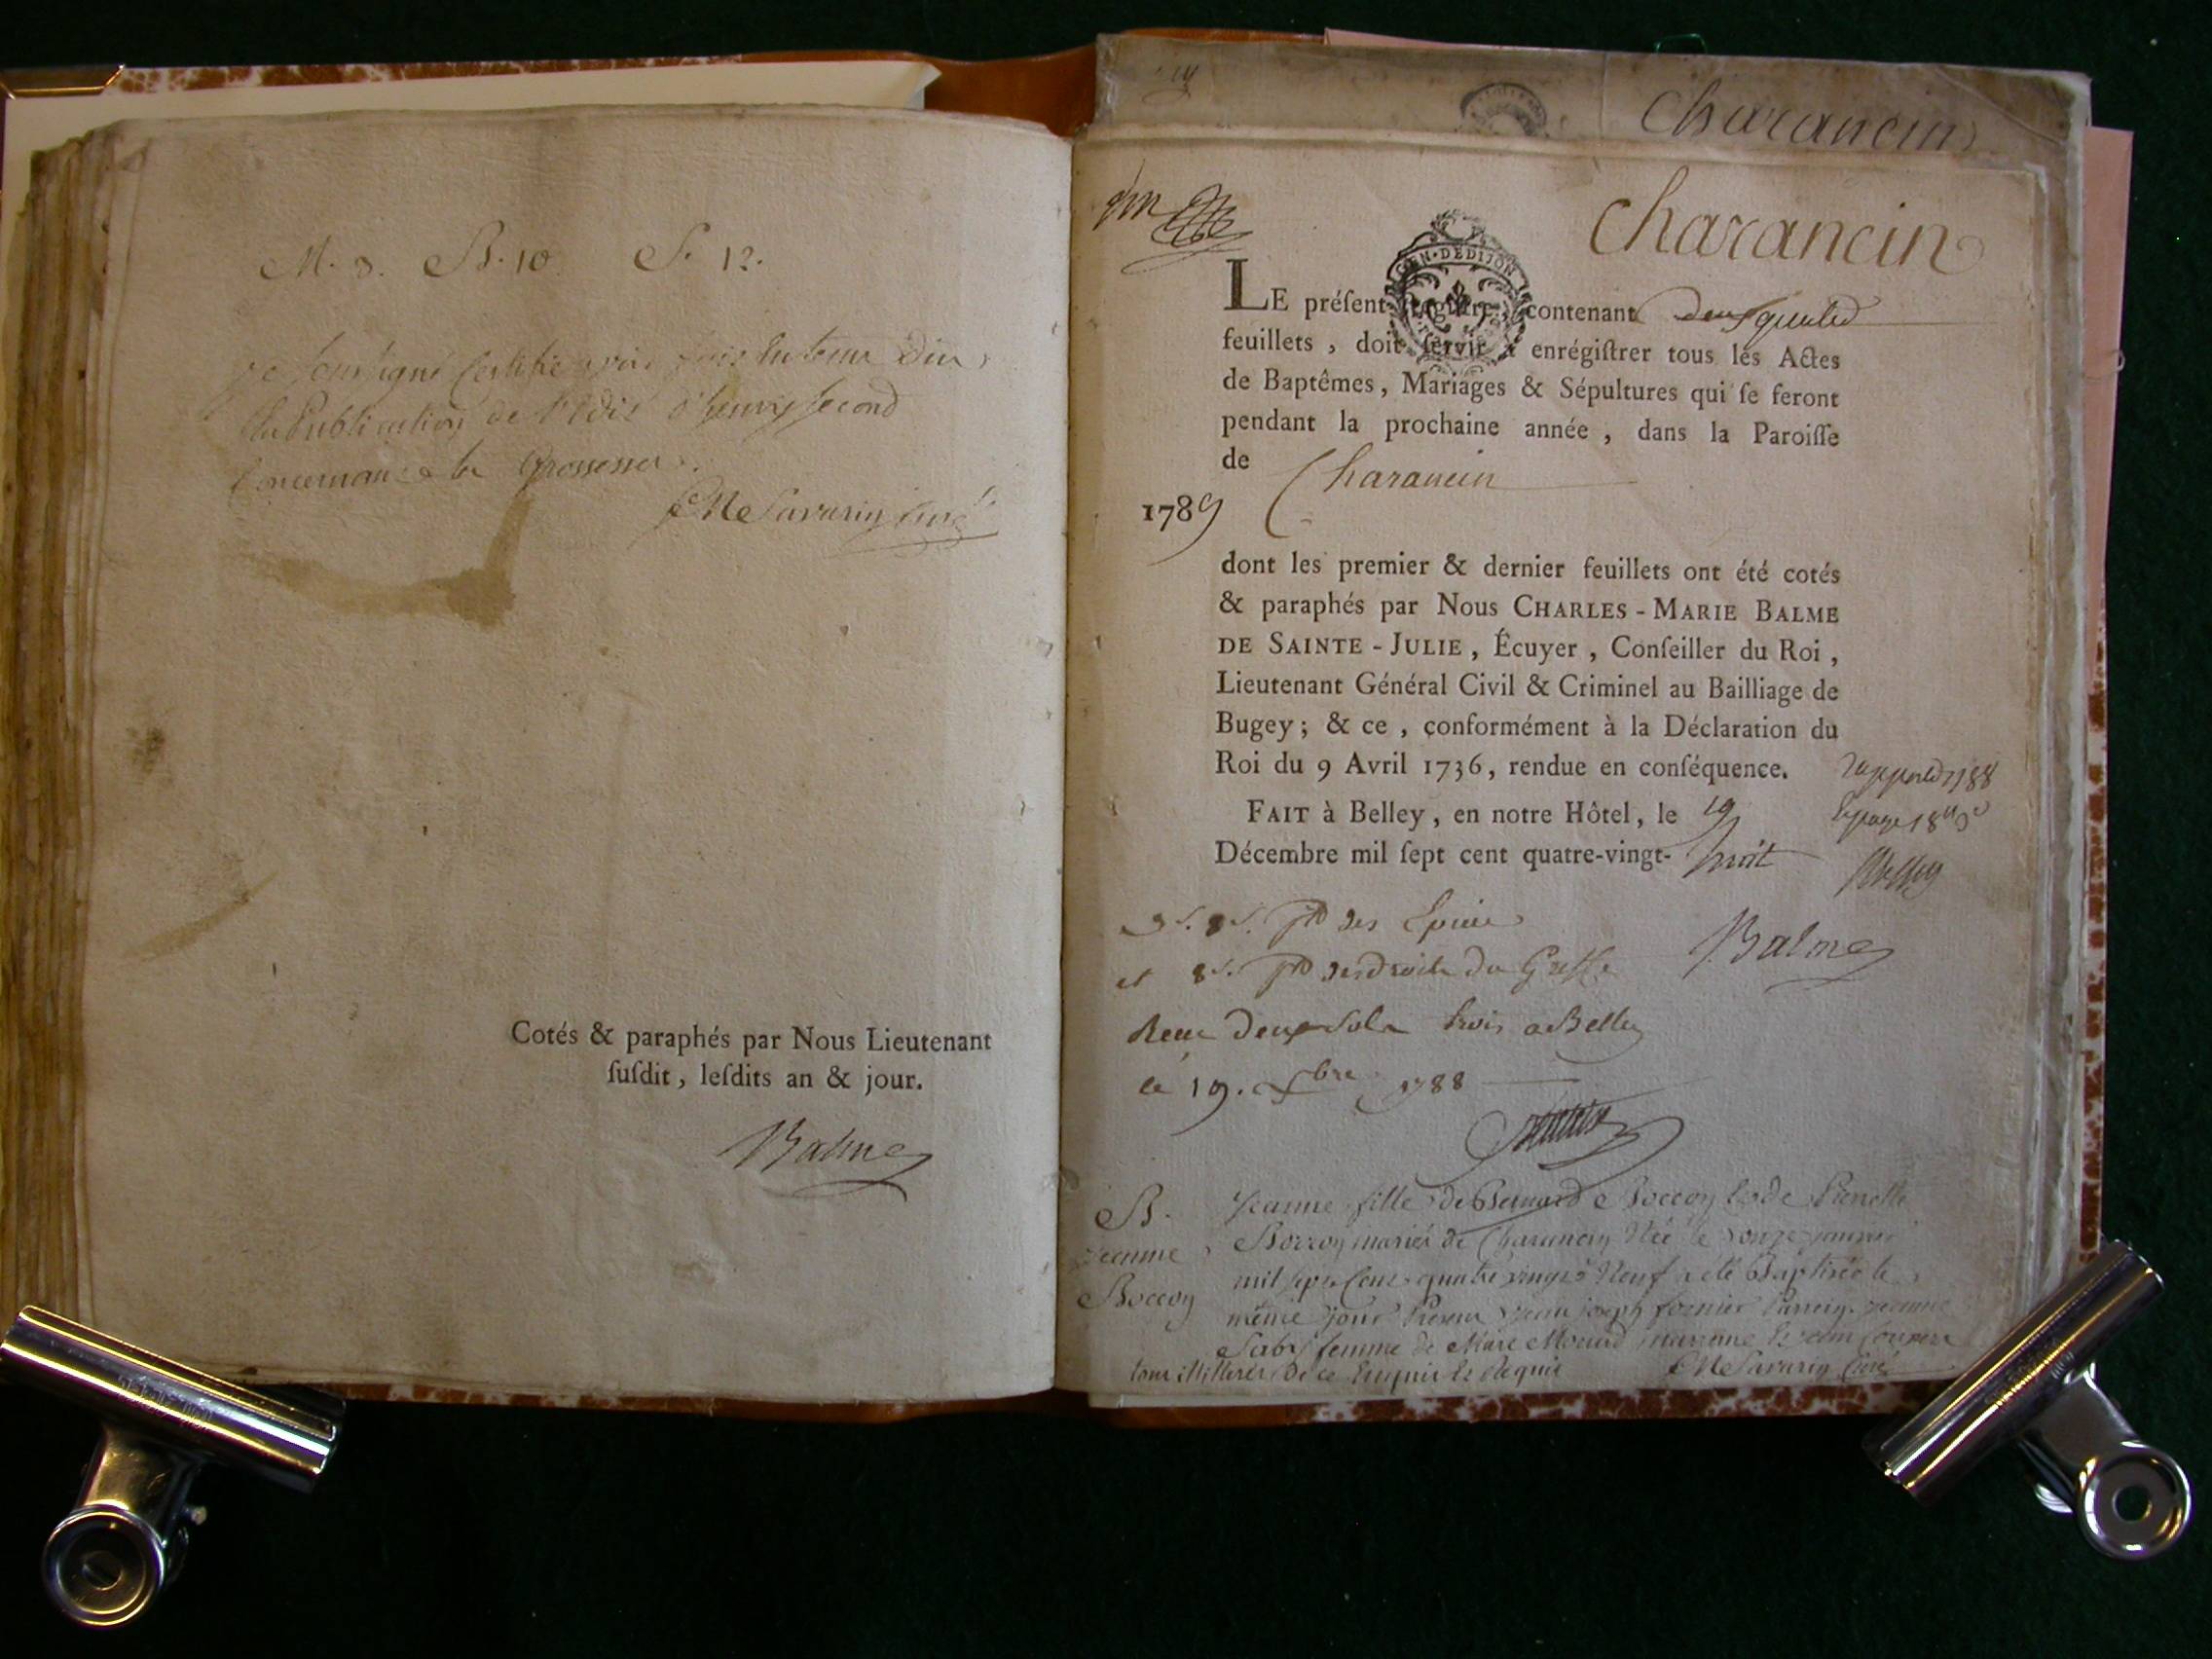 M. 3. B. 10 S. 12.
je soussigné certifie avoir
la Publication de l'Edit d'henry second
concernant la Grossesse
Savarin curé
Cotés & paraphés par Nous Lieutenant
ſuſdit, leſdits an & jour.
Balme
Charancin
Charancin
GEN·DE DIJON
LE préſent Regiſtre, contenant
feuillets, doit ſervir à enrégiſtrer tous les Actes
de Baptêmes, Mariages & Sépultures qui ſe feront
pendant la prochaine année, dans la Paroiſſe
de Charancin
1789
dont les premier & dernier feuillets ont été cotés
& paraphés par Nous CHARLES-MARIE BALME
DE SAINTE-JULIE, Écuyer, Conſeiller du Roi,
Lieutenant Général Civil & Criminel au Bailliage de
Bugey; & ce, conformément à la Déclaration du
Roi du 9 Avril 1736, rendue en conſéquence.
FAIT à Belley, en notre Hôtel, le 19
Décembre mil ſept cent quatre-vingt-huit
Balme
et 8 s. des droits du Greffe
Reçu deux sols trois a Belley
le 19. Xbre 1788
B.
Jeanne
Boccoy
Jeanne fille de Bernard Boccoy et de Pierrette
Borron mariés de Charancin Née le onze janvier
mil sept cent quatre vingts Neuf a été Baptisée le
même jour Jean joseph fornier Parrein. jeanne
femme de Marc marraine
tous illitterés de ce Enquis et Requis Savarin Curé